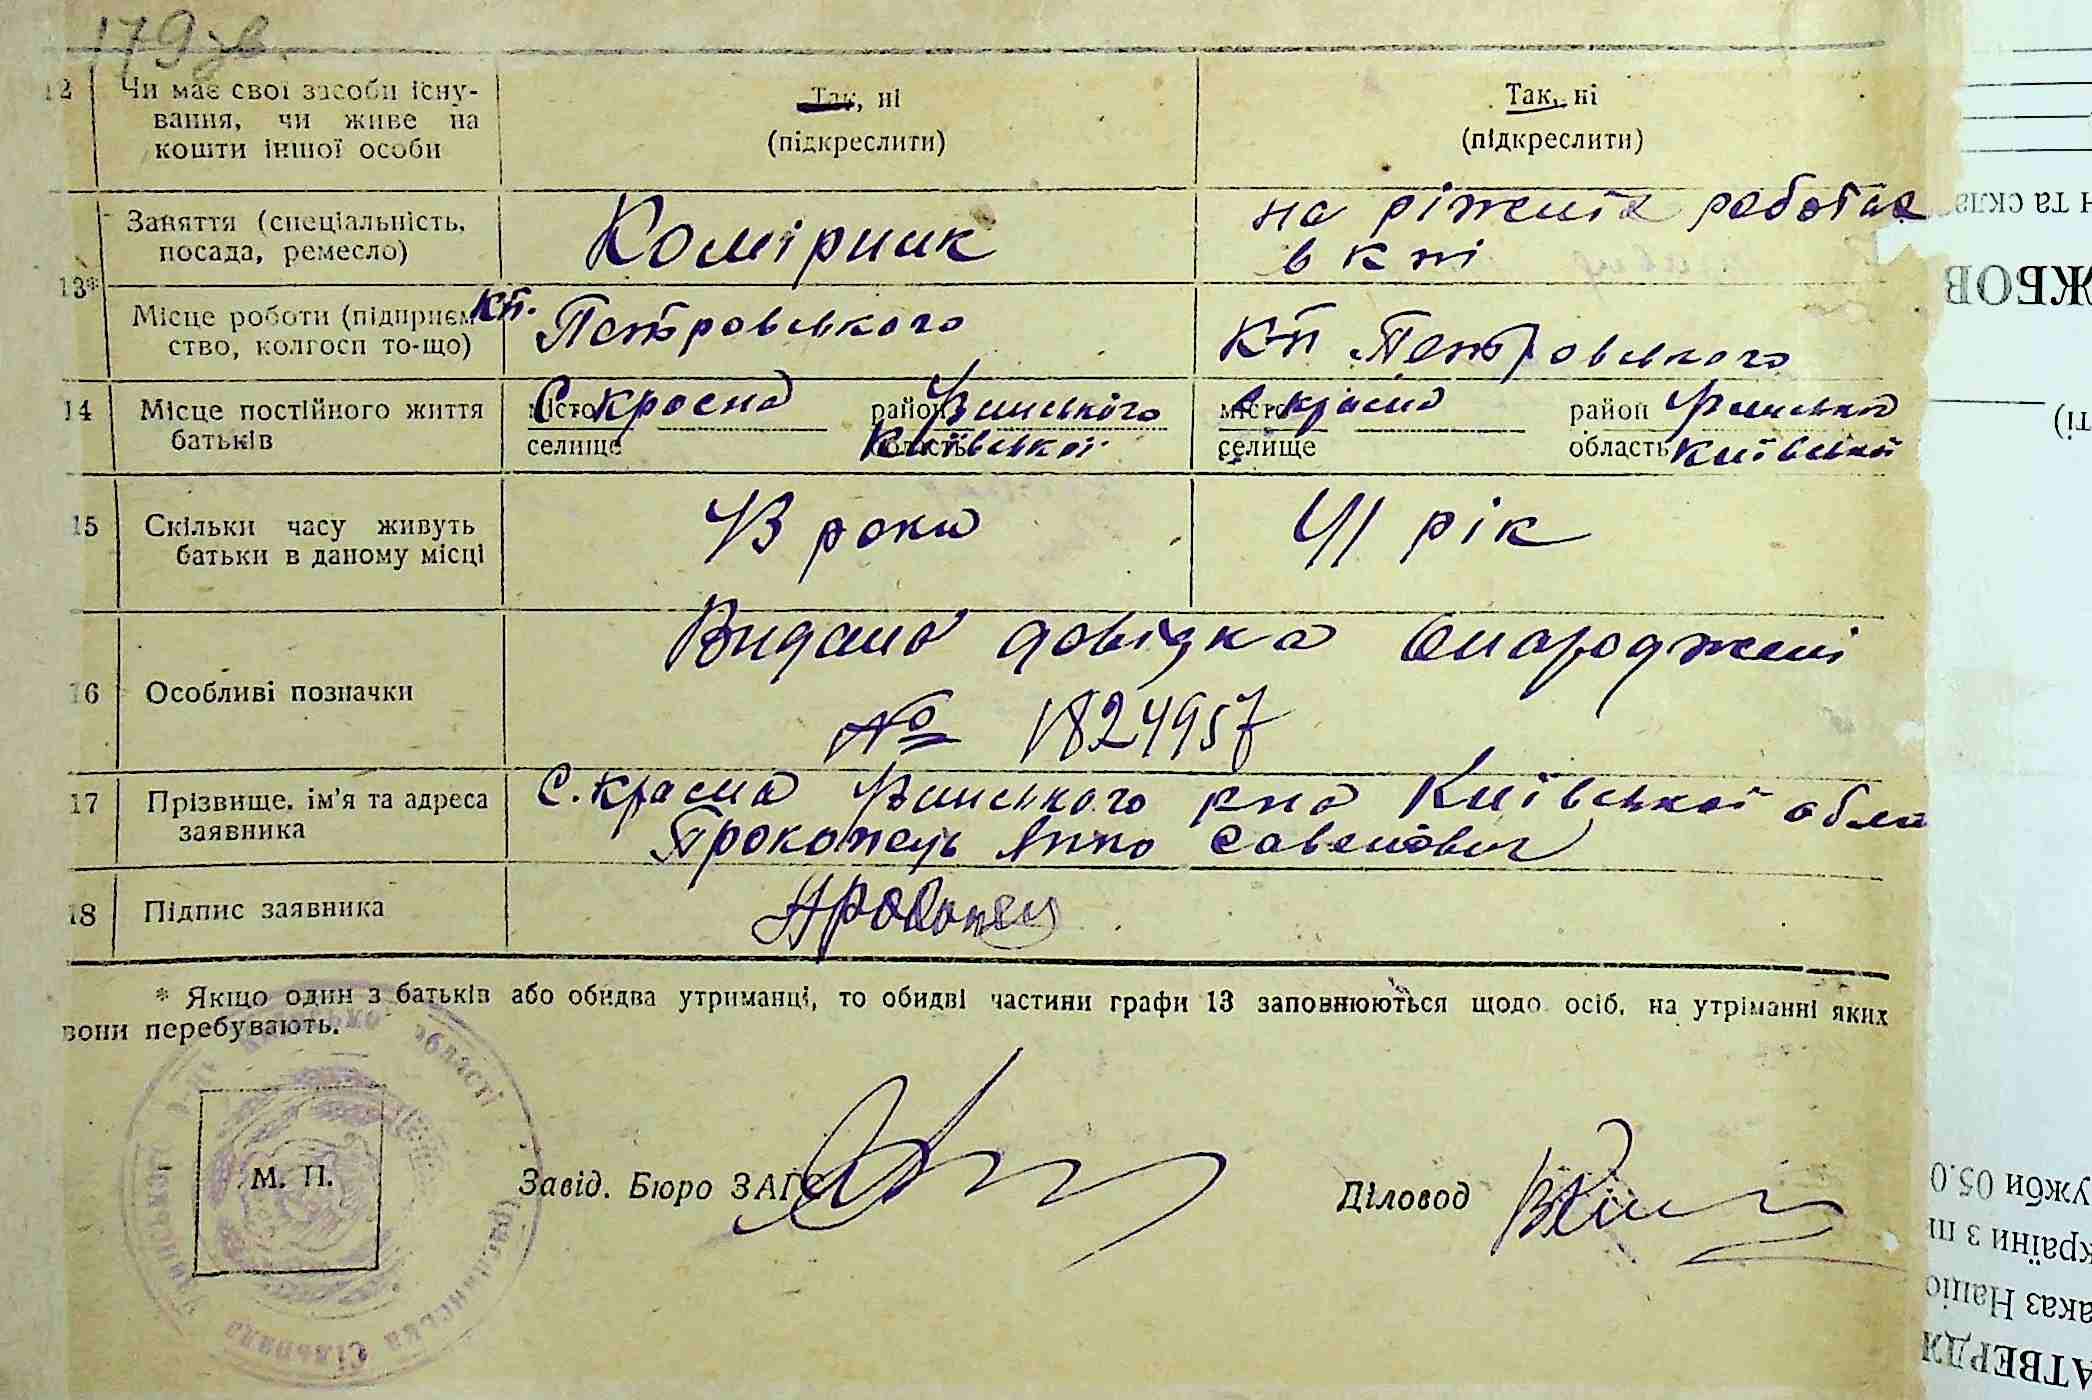 179 зв.
12 Чи має свої засоби існу-
вання, чи живе на
кошти іншої особи
Так, ні
(підкреслити)
Так, ні
(підкреслити)
13*
Заняття (спеціальність,
посада, ремесло)
Комірник
на ріжних работах
в кпі
Місце роботи (підприєм
ство, колгосп то-що)
кп. Петровського
кп Петровського
14 Місце постійного життя
батьків
місто
селище
С Красна
район
Київської
місто
селище
с красна
район
область Київської
15 Скільки часу живуть
батьки в даному місці
43 роки
41 рік
16 Особливі позначки
Видана довідка онароджені
№ 1824957
17 Прізвище, ім'я та адреса
заявника
С. Красна р-на Київської обла
Прокопець Савелович
18 Підпис заявника
Прокопец
* Якщо один з батьків або обидва утриманці, то обидві частини графи 13 заповнюються щодо осіб, на утріманні яких
вони перебувають.
М. П.
Завід. Бюро ЗАГС
Діловод
області
Сільрада
н та скла
ЖБОВ
ті)
ужби 05.0
країни з п
аказ Націо
АТВЕРДЖ